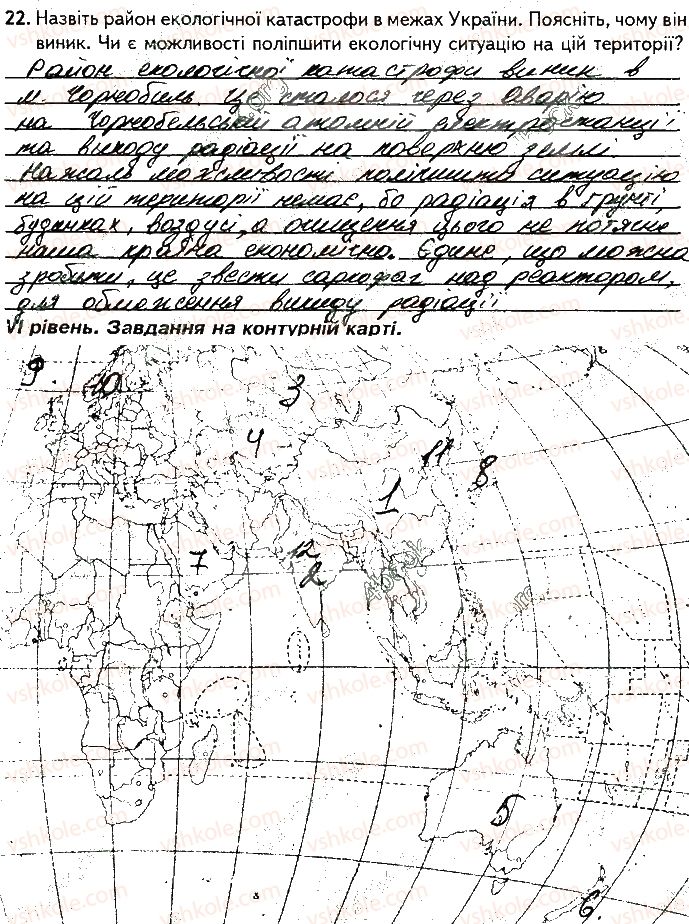 22. Назвіть район екологічної катастрофи в межах України. Поясніть, чому він
виник. Чи є можливості поліпшити екологічну ситуацію на цій території?
Район екологічної катастрофи виник в
м. Чорнобиль це сталося через Аварію
на Чорнобельській атомній електростанції
та викоду радіації на поверхню землі.
Нажаль можливости поліпшити ситуацію
на цій території немає, бо радіація в грунті,
будинках, воздусі, а очищення цього не потягне
наша країна економічно. Єдине, що можна
зробити, це звести саркофаг над реактором,
для обмеження викиду радіації
VI рівень. Завдання на контурній карті.
9
10
3
4
11
8
1
12
7
2
5
6